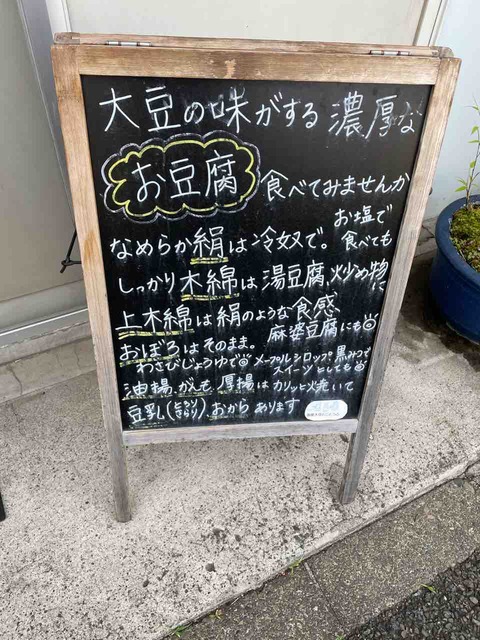 大豆の味がする濃厚な
お豆腐 食べてみませんか
なめらか絹は冷奴で。お塩で食べても
しっかり木綿は湯豆腐、炒め物に
上木綿は絹のような食感 麻婆豆腐にも
おぼろはそのまま。
わさびじょうゆで メープルシロップ 黒みつで スイーツとしても
油揚、がんも、厚揚はカリッと焼いて
豆乳(とろり さらり)、おからあります